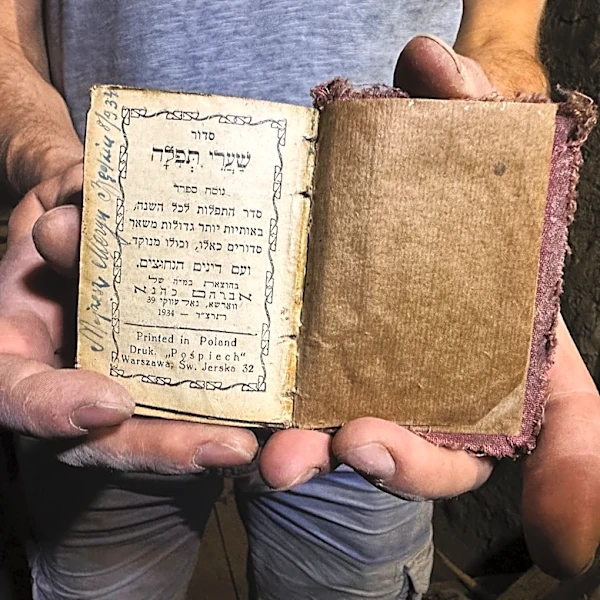 סדור
שַׁעֲרֵי תְּפִלָּה
נוסח ספרד
סדר התפלות לכל השנה,
באותיות יותר גדולות משאר
סדורים כאלו, וכולו מנוקד.
ועם דינים הנחוצים.
בהוצאת
אברהם כהנא
ווארשא, 39
תרצ"ד — 1934
Printed in Poland
Druk. „Pośpiech"
Warszawa, Św. Jerska 32